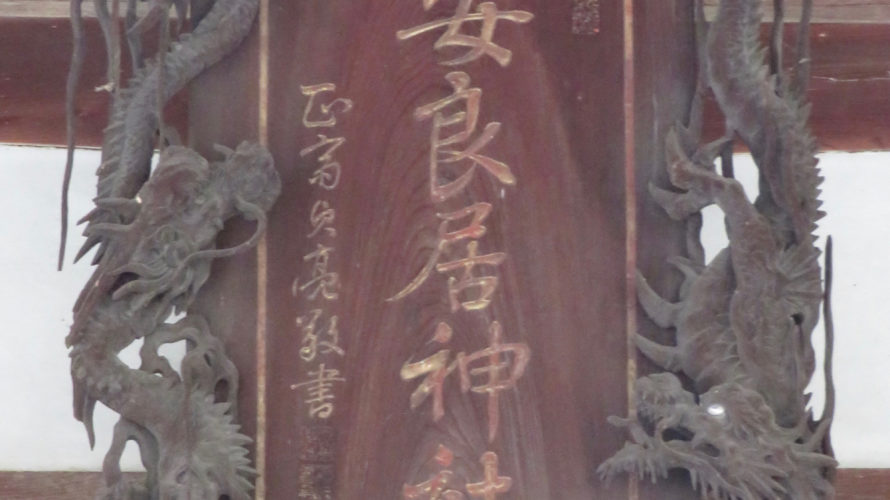 安良居神社
正富貞亮敬書